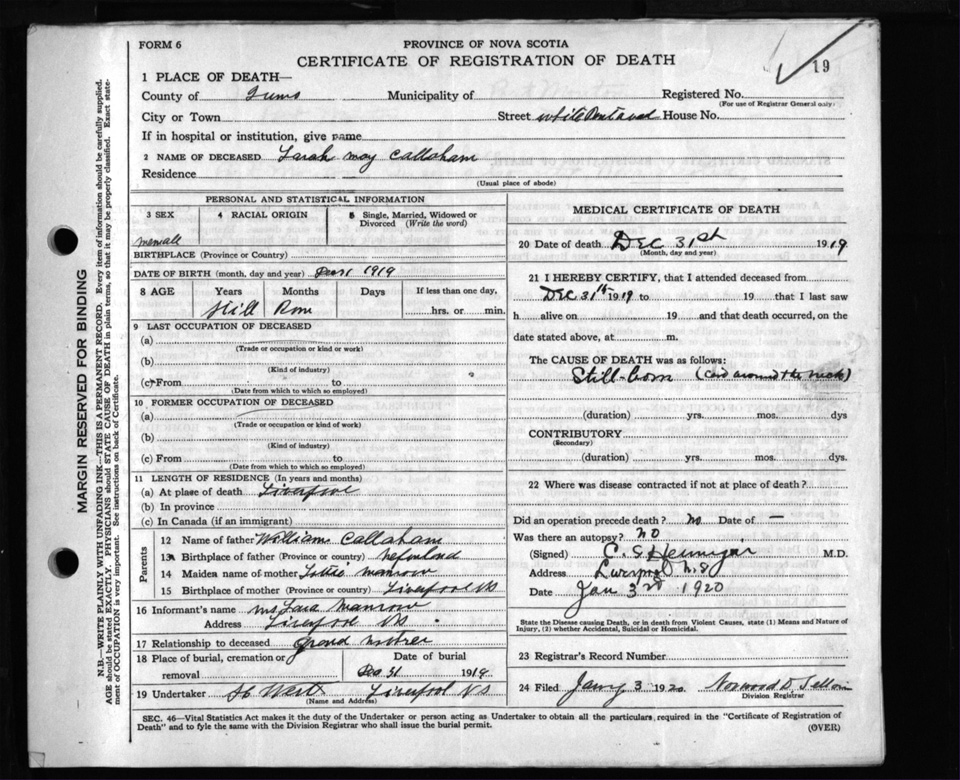 FORM 6
PROVINCE OF NOVA SCOTIA
CERTIFICATE OF REGISTRATION OF DEATH
19
1 PLACE OF DEATH—
County of Municipality of Registered No.
(For use of Registrar General only)
City or Town Street House No.
If in hospital or institution, give name
2 NAME OF DECEASED Sarah may Callaham
Residence
(Usual place of abode)
PERSONAL AND STATISTICAL INFORMATION
3 SEX 4 RACIAL ORIGIN 5 Single, Married, Widowed or Divorced (Write the word)
BIRTHPLACE (Province or Country)
DATE OF BIRTH (month, day and year) 1919
8 AGE Years Months Days If less than one day,
hrs. or min.
Still
9 LAST OCCUPATION OF DECEASED
(a)
(Trade or occupation or kind or work)
(b)
(Kind of industry)
(c) From to
(Date from which to which so employed)
10 FORMER OCCUPATION OF DECEASED
(a)
(Trade or occupation or kind of work)
(b)
(Kind of industry)
(c) From to
(Date from which to which so employed)
11 LENGTH OF RESIDENCE (In years and months)
(a) At place of death
(b) In province
(c) In Canada (if an immigrant)
Parents
12 Name of father William Callaham
13 Birthplace of father (Province or country)
14 Maiden name of mother Lottie manrow
15 Birthplace of mother (Province or country) Liverpool NS
16 Informant's name Manrow
Address Liverpool NS
17 Relationship to deceased grand mother
18 Place of burial, cremation or removal Date of burial
Dec 31 1919
19 Undertaker West Liverpool NS
(Name and Address)
MEDICAL CERTIFICATE OF DEATH
20 Date of death DEC 31st 1919
(Month, day and year)
21 I HEREBY CERTIFY, that I attended deceased from
DEC 31st 1919 to 19 that I last saw
h alive on 19 and that death occurred, on the
date stated above, at m.
The CAUSE OF DEATH was as follows:
Still-born (Cord around the neck)
(duration) yrs. mos. dys
CONTRIBUTORY
(Secondary)
(duration) yrs. mos. dys.
22 Where was disease contracted if not at place of death?
Did an operation precede death? no Date of —
Was there an autopsy? NO
(Signed) M.D.
Address Liverpool N.S
Date Jan 3rd 1920
State the Disease causing Death, or in death from Violent Causes, state (1) Means and Nature of
Injury, (2) whether Accidental, Suicidal or Homicidal.
23 Registrar's Record Number
24 Filed Jany 3 1920
Division Registrar
SEC. 46—Vital Statistics Act makes it the duty of the Undertaker or person acting as Undertaker to obtain all the particulars, required in the "Certificate of Registration of
Death" and to fyle the same with the Division Registrar who shall issue the burial permit.
(OVER)
MARGIN RESERVED FOR BINDING
N.B.—WRITE PLAINLY WITH UNFADING INK—THIS IS A PERMANENT RECORD. Every item of information should be carefully supplied.
AGE should be stated EXACTLY. PHYSICIANS should STATE CAUSE OF DEATH in plain terms, so that it may be properly classified. Exact state-
ment of OCCUPATION is very important. See instructions on back of Certificate.